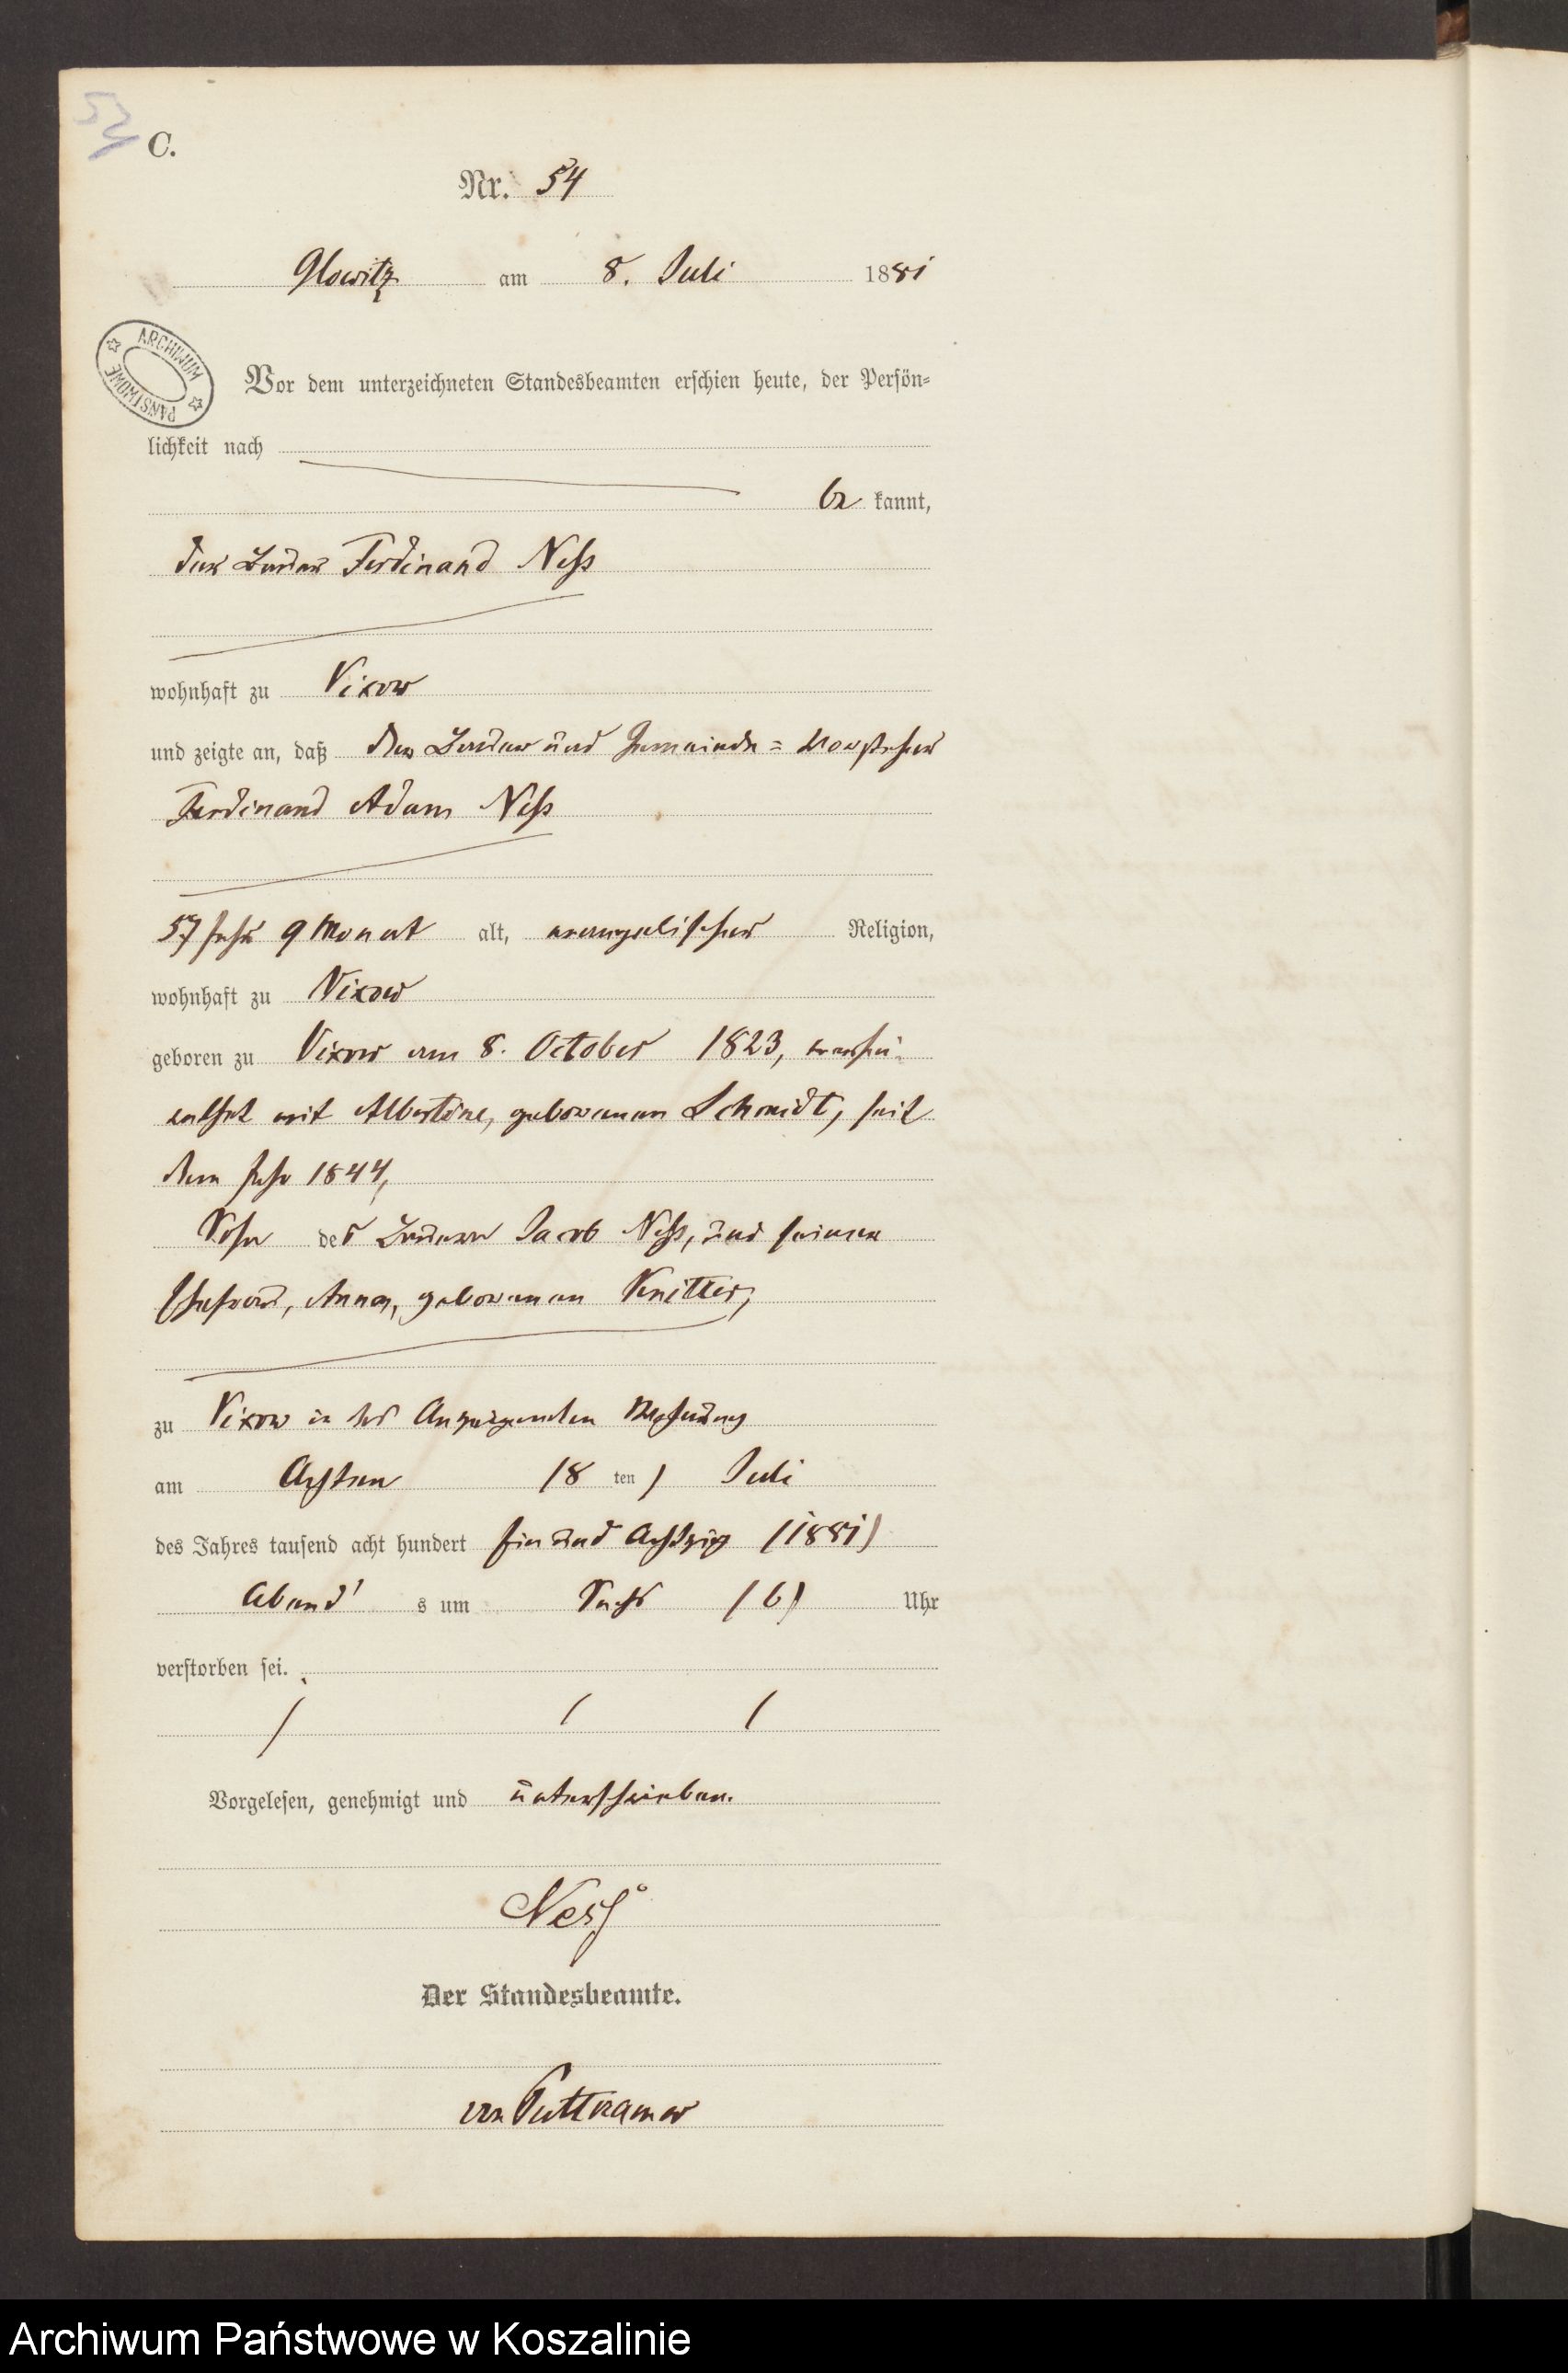 53
C.
Nr. 54
Glowitz am 8. Juli 1881
ARCHIWUM PAŃSTWOWE
Vor dem unterzeichneten Standesbeamten erschien heute, der Persön-
lichkeit nach
be kannt,
der Bauer Ferdinand Neß
wohnhaft zu Vixow
und zeigte an, daß der Bauer und Gemeinde = Vorsteher
Ferdinand Adam Neß
57 Jahr 9 Monat alt, evangelischer Religion,
wohnhaft zu Vixow
geboren zu Vixow am 8. October 1823, verhei-
rathet mit Albertine, geborenen Schmidt, seit
dem Jahr 1844,
Sohn des Bauern Jacob Neß, und seiner
Ehefrau, Anna, geborenen Knitter,
zu Vixow in des Anzeigenden Behausung
am Achten (8 ten) Juli
des Jahres tausend acht hundert Ein und Achtzig (1881)
Abend' s um Sechs (6) Uhr
verstorben sei.
Vorgelesen, genehmigt und unterschrieben.
Ness
Der Standesbeamte.
von Puttkamer
Archiwum Państwowe w Koszalinie